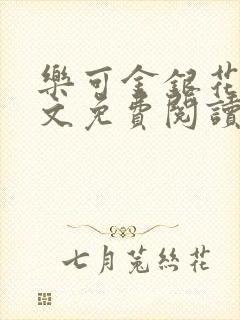 樂可金銀花
文免費閱讀
七月菟絲花